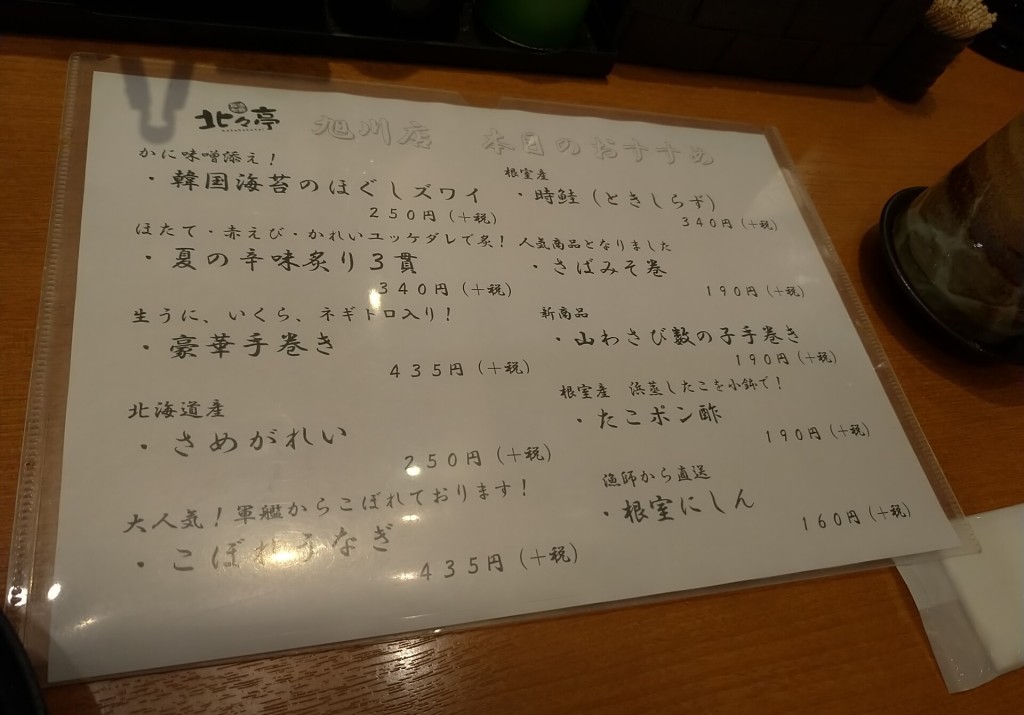 北々亭 旭川店 本日のおすすめ
かに味噌添え！
・韓国海苔のほぐしズワイ
250円（＋税）
ほたて・赤えび・かれいユッケダレで炙！
・夏の辛味炙り3貫
340円（＋税）
生うに、いくら、ネギトロ入り！
・豪華手巻き
435円（＋税）
北海道産
・さめがれい
250円（＋税）
大人気！軍艦からこぼれております！
・こぼれうなぎ
435円（＋税）
根室産
・時鮭（ときしらず）
340円（＋税）
人気商品となりました
・さばみそ巻
190円（＋税）
新商品
・山わさび数の子手巻き
190円（＋税）
根室産 浜蒸したこを小鉢で！
・たこポン酢
190円（＋税）
漁師から直送
・根室にしん
160円（＋税）